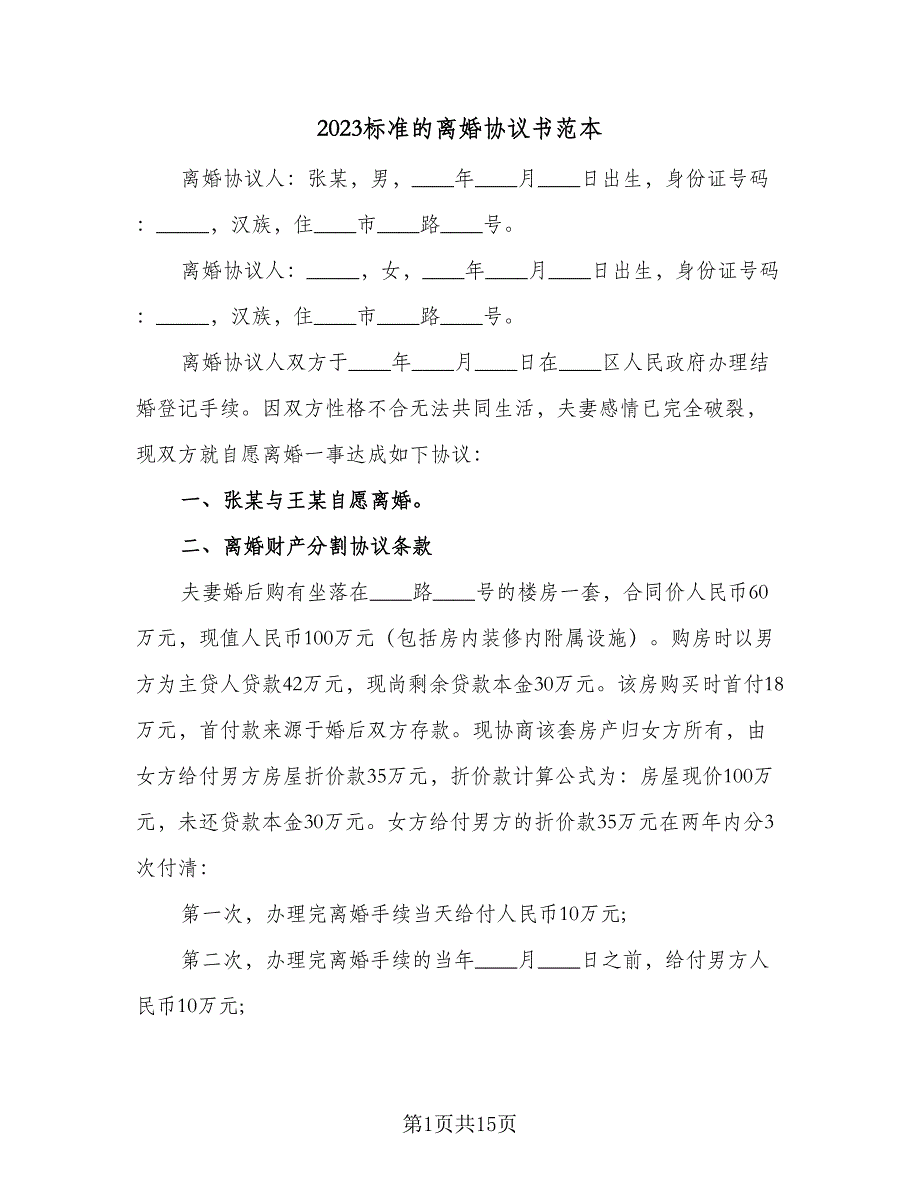 2023标准的离婚协议书范本
离婚协议人：张某，男，____年____月____日出生，身份证号码
：_____，汉族，住____市____路____号。
离婚协议人：_____，女，____年____月____日出生，身份证号码
：_____，汉族，住____市____路____号。
离婚协议人双方于____年____月____日在____区人民政府办理结
婚登记手续。因双方性格不合无法共同生活，夫妻感情已完全破裂，
现双方就自愿离婚一事达成如下协议：
一、张某与王某自愿离婚。
二、离婚财产分割协议条款
夫妻婚后购有坐落在____路____号的楼房一套，合同价人民币60
万元，现值人民币100万元（包括房内装修内附属设施）。购房时以男
方为主贷人贷款42万元，现尚剩余贷款本金30万元。该房购买时首付18
万元，首付款来源于婚后双方存款。现协商该套房产归女方所有，由
女方给付男方房屋折价款35万元，折价款计算公式为：房屋现价100万
元，未还贷款本金30万元。女方给付男方的折价款35万元在两年内分3
次付清：
第一次，办理完离婚手续当天给付人民币10万元;
第二次，办理完离婚手续的当年____月____日之前，给付男方人
民币10万元;
第1页共15页